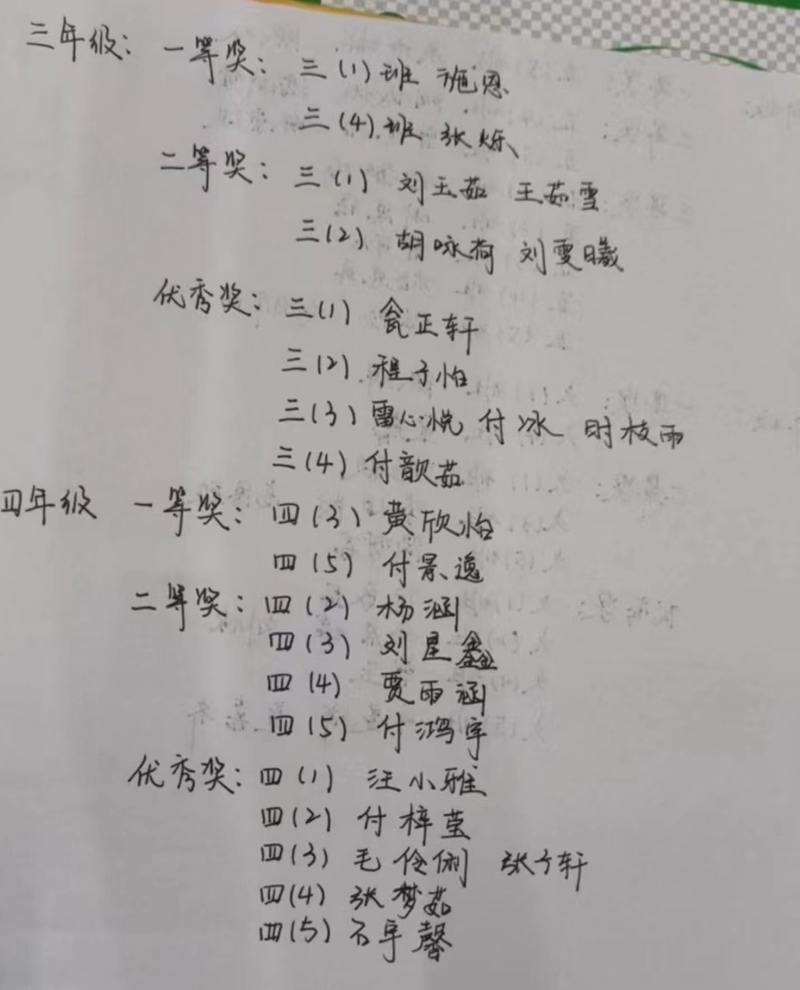 三年级：一等奖：三(1)班 施恩
三(4)班 张烁
二等奖：三(1) 刘玉茹 王茹雪
三(2) 胡咏荷 刘雯曦
优秀奖：三(1) 瓮正轩
三(2) 程子怡
三(3) 雷心悦 付冰 时枝雨
三(4) 付歆茹
四年级 一等奖：四(3) 黄欣怡
四(5) 付景逸
二等奖：四(2) 杨涵
四(3) 刘星鑫
四(4) 贾雨涵
四(5) 付鸿宇
优秀奖：四(1) 汪小雅
四(2) 付梓莹
四(3) 毛伶俐 张子轩
四(4) 张梦茹
四(5) 石宇馨